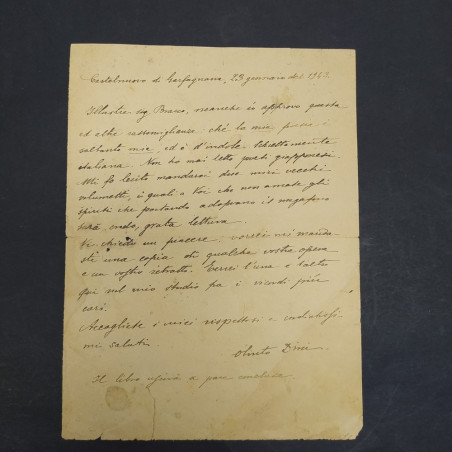 Castelnuovo di Garfagnana, 23 gennaio del 1923.
Illustre sig. Bracco, neanche io approvo questa
ed altre rassomiglianze, ché la mia, è
soltanto mia, ed è d'indole schiettamente
italiana. Non ho mai letto poeti giapponesi.
Mi fo lecito mandarvi due miei vecchi
volumetti, i quali a Voi che non amate gli
spiriti che portando adoprano il megafono
credo, grata lettura.
Vi chiedo un piacere: vorrei mi mandaste
una copia di qualche vostra opera
e un vostro ritratto. l'una e l'altro
qui nel mio studio fra i ricordi più
cari.
Accogliete i miei rispettosi e cordialissimi
saluti.
Dini
Il libro a parte